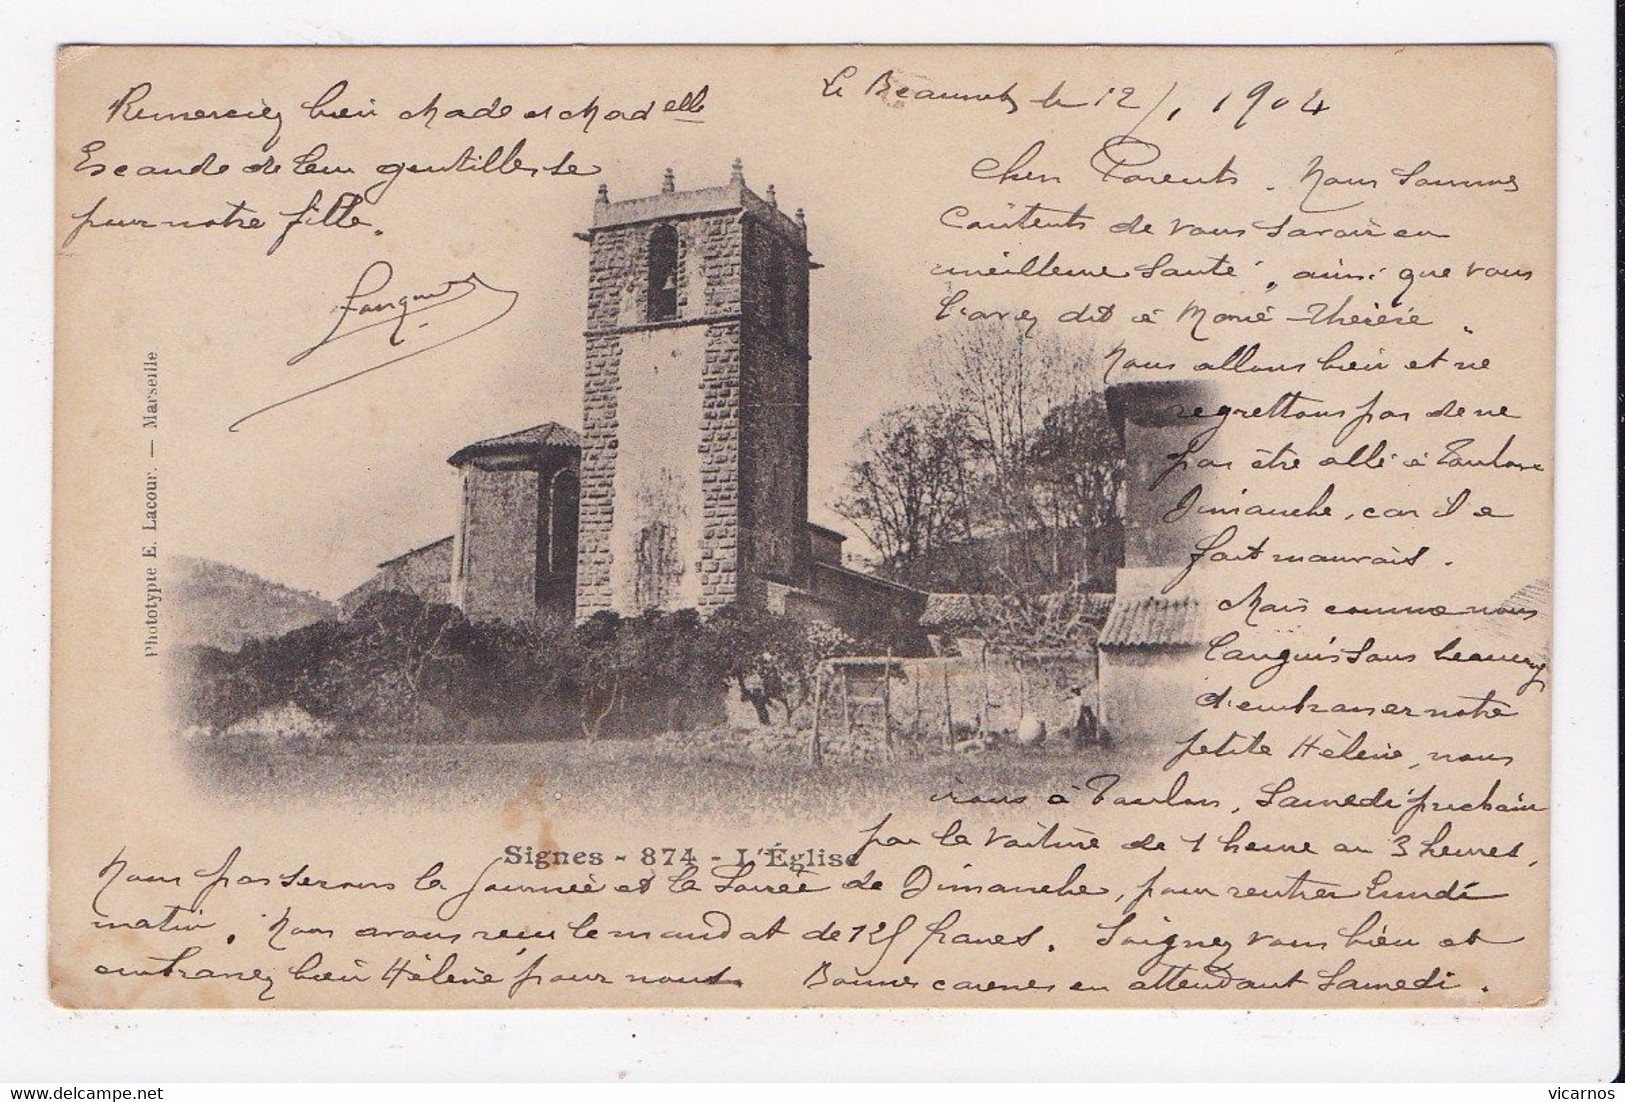 Le Beausset le 12/1 1904
Chers Parents. Nous sommes
contents de vous savoir en
meilleure santé, ainsi que vous
l'avez dit à Marie-Thérèse.
Nous allons bien et ne
regrettons pas de ne
pas être allé à Toulon
Dimanche, car il a
fait mauvais.
Mais comme nous
languissons beaucoup
d'embrasser notre
petite Hélène, nous
irons à Toulon, Samedi prochain
par la voiture de 1 heure ou 3 heures,
Nous passerons la journée et la soirée de Dimanche, pour rentrer Lundi
matin. Nous avons reçu le mandat de 125 francs. Soignez vous bien et
embrassez bien Hélène pour nous. Bonnes caresses en attendant Samedi.
Remerciez bien Made et Madelle
Escande de leur gentillesse
pour notre fille.
Signes - 874 - L'Église
Phototypie E. Lacour. — Marseille
vicarnos